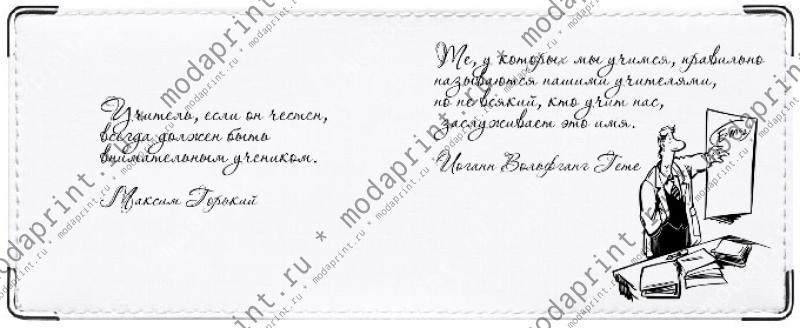 Учитель, если он честен,
всегда должен быть
внимательным учеником.
Максим Горький
Те, у которых мы учимся, правильно
называются нашими учителями,
но не всякий, кто учит нас,
заслуживает это имя.
Иоганн Вольфганг Гете
E=mc²
modaprint.ru * modaprint.ru * modaprint.ru